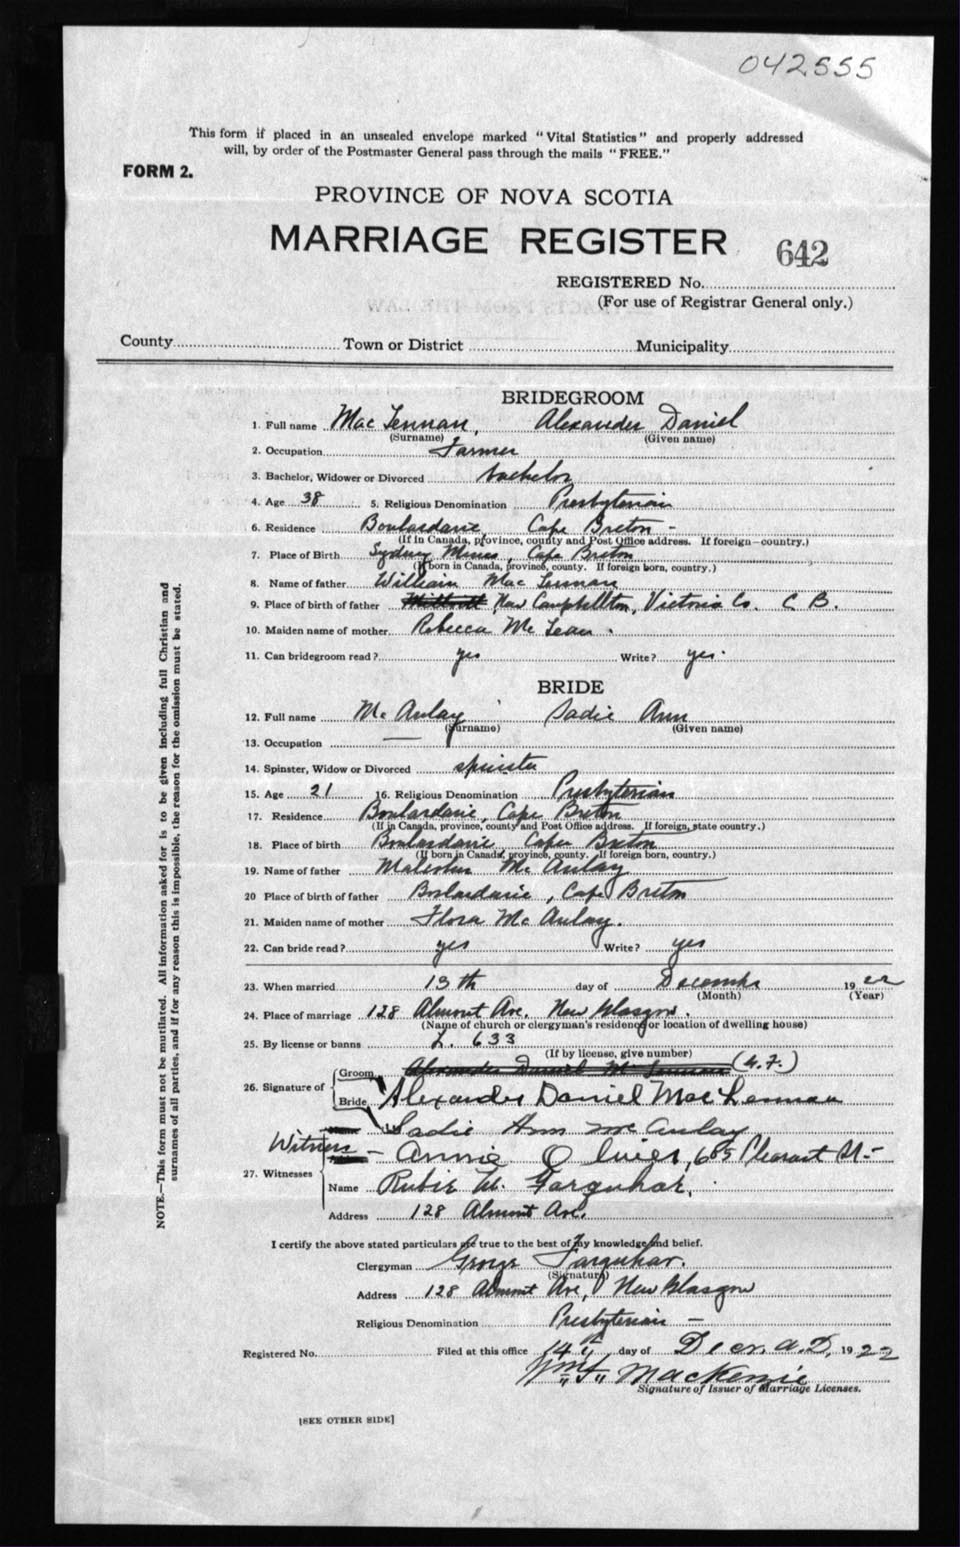 042555
This form if placed in an unsealed envelope marked "Vital Statistics" and properly addressed
will, by order of the Postmaster General pass through the mails "FREE."
FORM 2.
PROVINCE OF NOVA SCOTIA
MARRIAGE REGISTER 642
REGISTERED No.
(For use of Registrar General only.)
County Town or District Municipality
BRIDEGROOM
1. Full name Mac Lennan, Alexander Daniel
(Surname) (Given name)
2. Occupation Farmer
3. Bachelor, Widower or Divorced bachelor
4. Age 38 5. Religious Denomination Presbyterian
6. Residence Boulardarie Cape Breton -
(If in Canada, province, county and Post Office address. If foreign—country.)
7. Place of Birth Sydney Mines, Cape Breton
(If born in Canada, province, county. If foreign born, country.)
8. Name of father William Mac Lennan
9. Place of birth of father New Campbellton, Victoria Co. C B.
10. Maiden name of mother Rebecca Mc Lean.
11. Can bridegroom read? yes Write? yes.
BRIDE
12. Full name Mc Aulay Sadie Ann
(Surname) (Given name)
13. Occupation —
14. Spinster, Widow or Divorced spinster
15. Age 21 16. Religious Denomination Presbyterian
17. Residence Boulardarie, Cape Breton
(If in Canada, province, county and Post Office address. If foreign, state country.)
18. Place of birth Boulardarie Cape Breton
(If born in Canada, province, county. If foreign born, country.)
19. Name of father Malcolm Mc Aulay
20 Place of birth of father Boulardarie, Cape Breton
21. Maiden name of mother Flora Mc Aulay.
22. Can bride read? yes Write? yes
23. When married 13th day of December 1922
(Month) (Year)
24. Place of marriage 128 Almont Ave. New Glasgow.
(Name of church or clergyman's residence or location of dwelling house)
25. By license or banns L. 633
(If by license, give number)
Groom Alexander Daniel Mc Lennan (G.F.)
26. Signature of
Bride Alexander Daniel MacLennan
Sadie Ann McAulay
Witness - Annie Oliver, 685 Pleasant St.-
27. Witnesses
Name Rubie M. Farquhar.
Address 128 Almont Ave.
I certify the above stated particulars are true to the best of my knowledge and belief.
Clergyman George Farquhar.
(Signature)
Address 128 Almont Ave, New Glasgow
Religious Denomination Presbyterian —
Registered No. Filed at this office 14th day of Decr. A.D. 1922
Wm F. MacKenzie
Signature of Issuer of Marriage Licenses.
[SEE OTHER SIDE]
NOTE.—This form must not be mutilated. All information asked for is to be given including full Christian and
surnames of all parties, and if for any reason this is impossible, the reason for the omission must be stated.